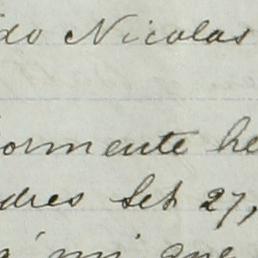 do Nicolas
ormente he
dres Set 27,
á mi que